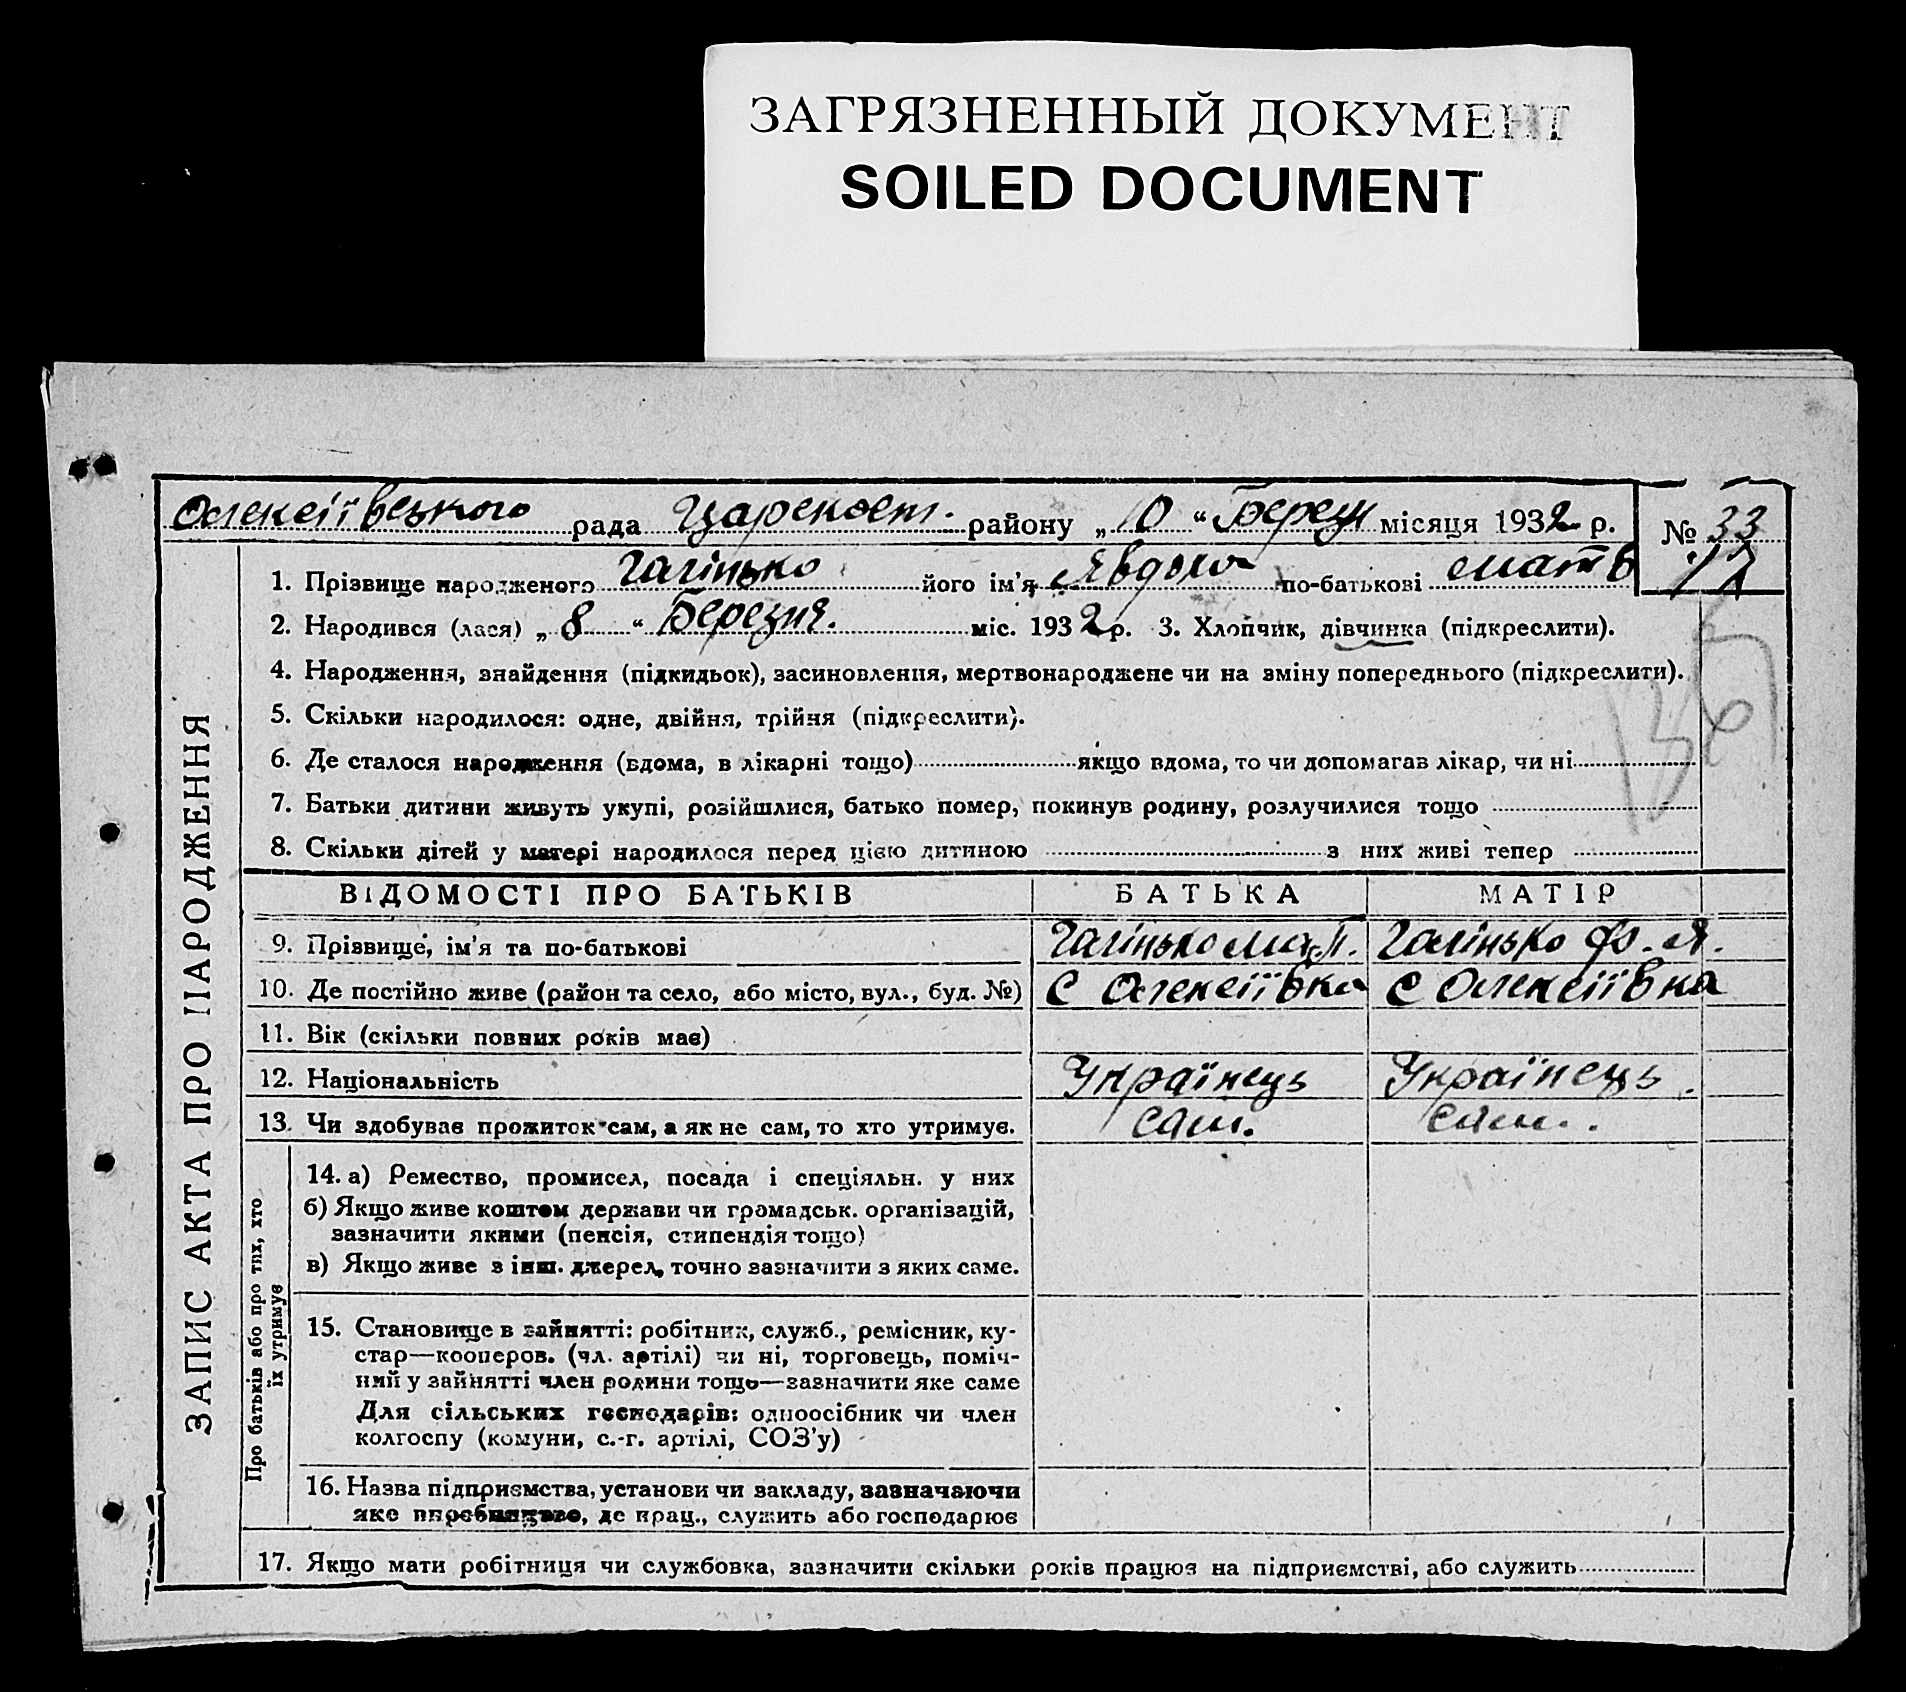 ЗАГРЯЗНЕННЫЙ ДОКУМЕНТ
SOILED DOCUMENT
Олексіївського рада Царекост. району „ 10 “ Берез місяця 1932 р. № 33
1. Прізвище народженого Галінько його ім’я Явдоха по-батькові Матв 17
2. Народився (лася) „ 8 “ Березня. міс. 1932 р. 3. Хлопчик, дівчинка (підкреслити).
4. Народження, знайдення (підкидьок), засиновлення, мертвонароджене чи на зміну попереднього (підкреслити).
5. Скільки народилося: одне, двійня, трійня (підкреслити).
6. Де сталося народження (вдома, в лікарні тощо) якщо вдома, то чи допомагав лікар, чи ні
7. Батьки дитини живуть укупі, розійшлися, батько помер, покинув родину, розлучилися тощо
8. Скільки дітей у матері народилося перед цією дитиною з них живі тепер
ЗАПИС АКТА ПРО НАРОДЖЕННЯ
ВІДОМОСТІ ПРО БАТЬКІВ БАТЬКА МАТІР
9. Прізвище, ім’я та по-батькові Галінько Ма.П. Галінько Ф. Я.
10. Де постійно живе (район та село, або місто, вул., буд. №) С Олексіївка С Олексіївка
11. Вік (скільки повних років має)
12. Національність Українець Українець.
13. Чи здобував прожиток сам, а як не сам, то хто утримує. сам. сам.
Про батьків або про тих, хто
їх утримує
14. а) Ремество, промисел, посада і спеціяльн. у них
б) Якщо живе коштом держави чи громадськ. організацій,
зазначити якими (пенсія, стипендія тощо)
в) Якщо живе з інш. джерел, точно зазначити з яких саме.
15. Становище в зайнятті: робітник, служб., ремісник, ку-
стар—кооперов. (чл. артілі) чи ні, торговець, поміч-
ний у зайнятті член родини тощо—зазначити яке саме
Для сільських господарів: одноосібник чи член
колгоспу (комуни, с.-г. артілі, СОЗ’у)
16. Назва підприємства, установи чи закладу, зазначаючи
яке виробництво, де прац., служить або господарює
17. Якщо мати робітниця чи службовка, зазначити скільки років працює на підприємстві, або служить